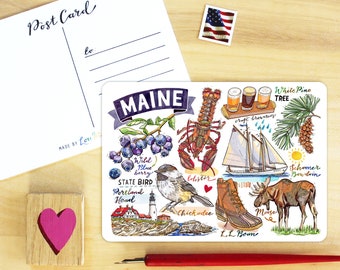 Post Card
to
MADE BY
MAINE
Wild
Blue
berry
STATE BIRD
Chickadee
Portland
Head
Lobster
craft breweries
White Pine
TREE
Schooner
Freedom
L.L. Bean
Moose